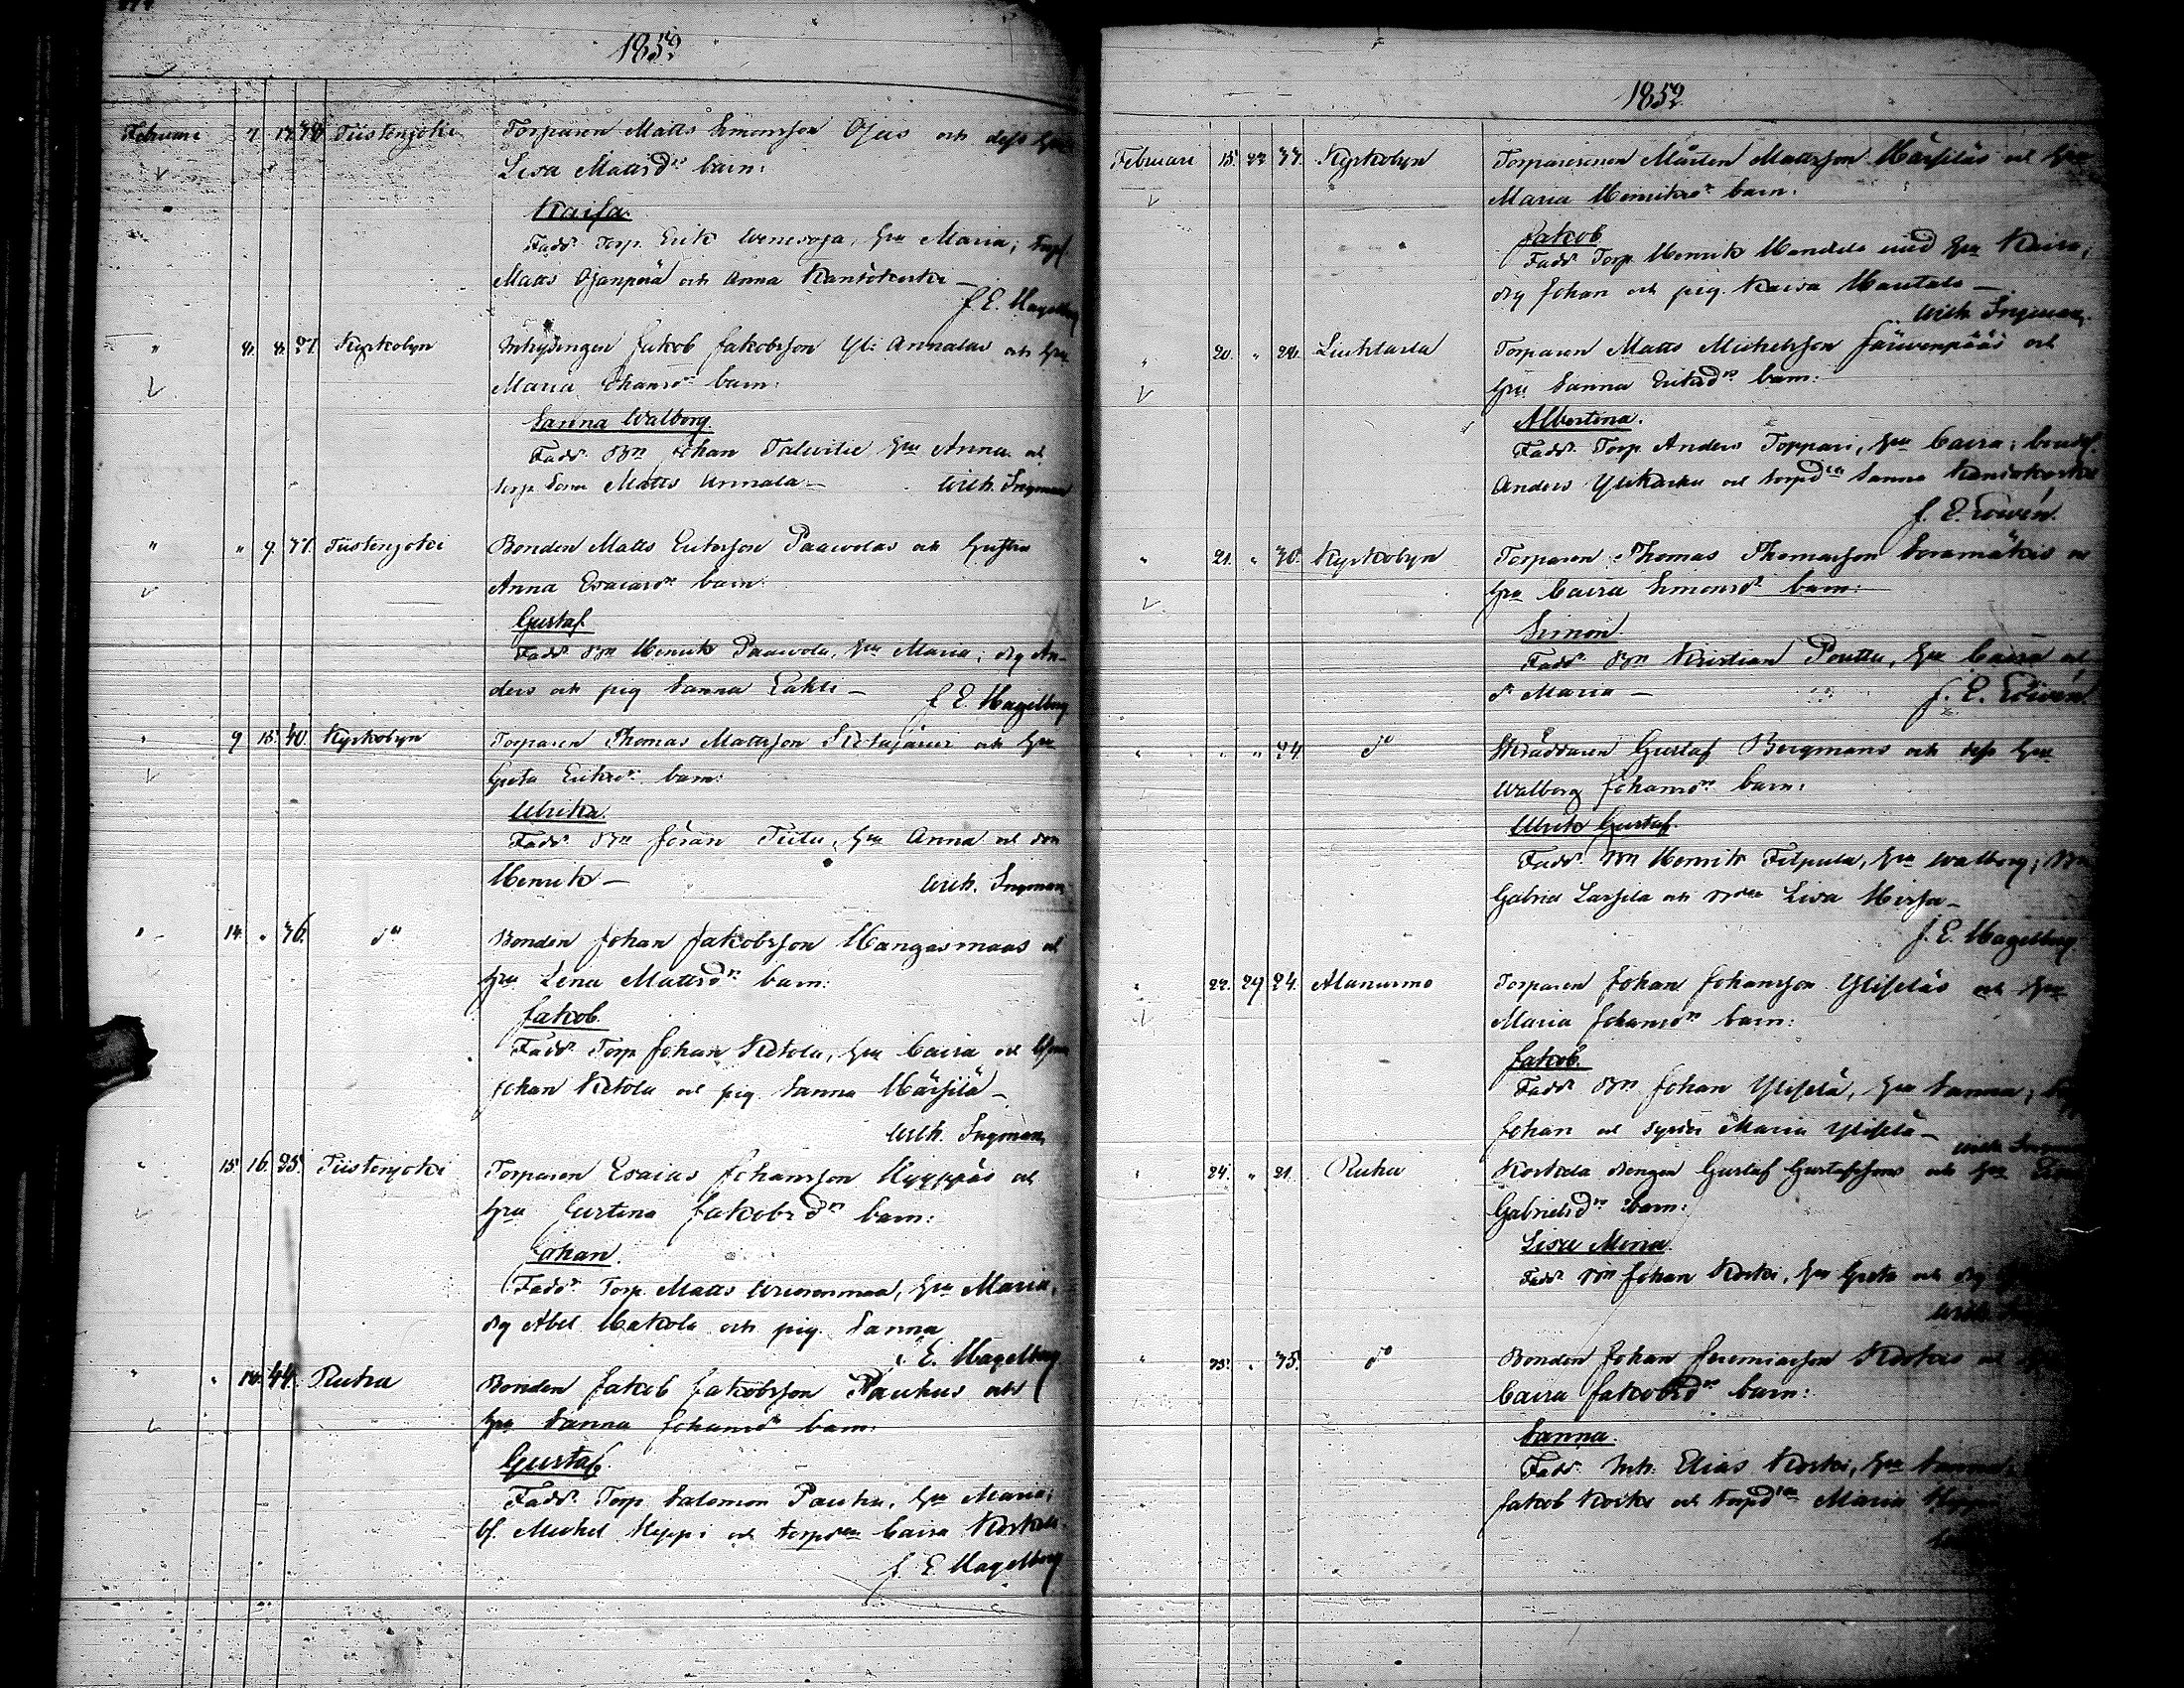 1852
Februari 7. 12. 38. Tiistenjoki Torparen Matts Simonsson Ojas och dess hu
Lisa Mattsdr barn:
Kaisa.
Fadd. Torp. Erik Wenesoja, hu Maria; torps
Matts Ojanperä och Anna Kantokoski —
J. E. Hagelberg
" 8. 8. 27. Kyrkobyn Inhysingen Jakob Jakobsson Yli Annalas och hu
Maria Johansdr barn:
Sanna Walborg.
Fadd. Bn Johan Talvitie hu Anna och
torp. son Matts Annala — Wilh. Ingman
" " 9. 37. Tiistenjoki Bonden Matts Eriksson Paavolas och hustru
Anna Esaiasdr barn:
Gustaf
Fadd. Bn Henrik Paavola, hu Maria; drg An-
ders och pig Sanna Lahti — J. E. Hagelberg
" 9 15. 40. Kyrkobyn Torparen Thomas Mattsson Ketajärvi och hu
Greta Eriksdr barn:
Ulrika.
Fadd. Bn Jöran Tiitu, hu Anna och son
Henrik — Wilh. Ingman
" 14. " 36. do Bonden Johan Jakobsson Kangasmaas och
hu Lena Mattsdr barn:
Jakob.
Fadd. Torp Johan Ketola, hu Caisa och
Johan Ketola och pig. Sanna Härsilä —
Wilh. Ingman
" 15. 16. 25. Tiistenjoki Torparen Esaias Johansson Hyyppäs och
hu Justina Jakobsdr barn:
Johan.
Fadd. Torp. Matts Wuorenmaa, hu Maria,
drg Abel Hakola och pig. Sanna
J. E. Hagelberg
" " 18. 44. Ruha Bonden Jakob Jakobsson Pauhus och
hu Sanna Johansdr barn:
Gustaf.
Fadd. Torp. Salomon Pauha, hu Maria;
bs. Michel Hyppi och torpdn Caisa Koskela.
J. E. Hagelberg
1852
Februari 15. 22. 37. Kyrkobyn Torparesonen Mårten Mattsson Härsiläs och hu
Maria Henriksdr barn:
Jakob
Fadd. Torp. Henrik Mandela med hu Kaisa;
drg Johan och pig. Kaisa Hautala —
Wilh. Ingman.
" 20. " 28. Liuhtarla Torparen Matts Michelsson Järwenpääs och
hu Sanna Eriksdr barn:
Albertina.
Fadd. Torp Anders Toppari, hu Caisa; bonds.
Anders Ylikoski och torpdn Sanna Kantokoski
J. E. Edwén.
" 21. " 30. Kyrkobyn Torparen Thomas Thomasson Soramäkis och
hu Caisa Simonsdr barn:
Simon.
Fadd. Bn Kristian Pouttu, hu Caisa och
dr Maria — J. E. Edwén.
" " " 24. do Skräddaren Gustaf Bergmans och dess hu
Walborg Johansdr barn:
Ulrik Gustaf.
Fadd. Bn Henrik Filpula, hu Walborg; Bn
Gabriel Lassila och Lisa Hirsa —
J. E. Hagelberg
" 22. 29 24. Alanurmo Torparen Johan Johansson Ylisiläs och hu
Maria Johansdr barn:
Jakob.
Fadd. Bn Johan Ylisilä, hu Sanna;
Johan och syster Maria Ylisilä —
Wilh. Ingman
" 24. " 21. Ruha Koskela drengen Gustaf Gustafssons och hu
Gabrielsdr barn:
Lisa Maria.
Fadd. Bn Johan Koski, hu Greta och drg
Wilh.
" 25. " 35. do Bonden Johan Jeremiasson Koskis och
Caisa Jakobsdr barn:
Sanna.
Fadd. Inh. Elias Koski, hu Sanna
Jakob Koski och torpdn Maria